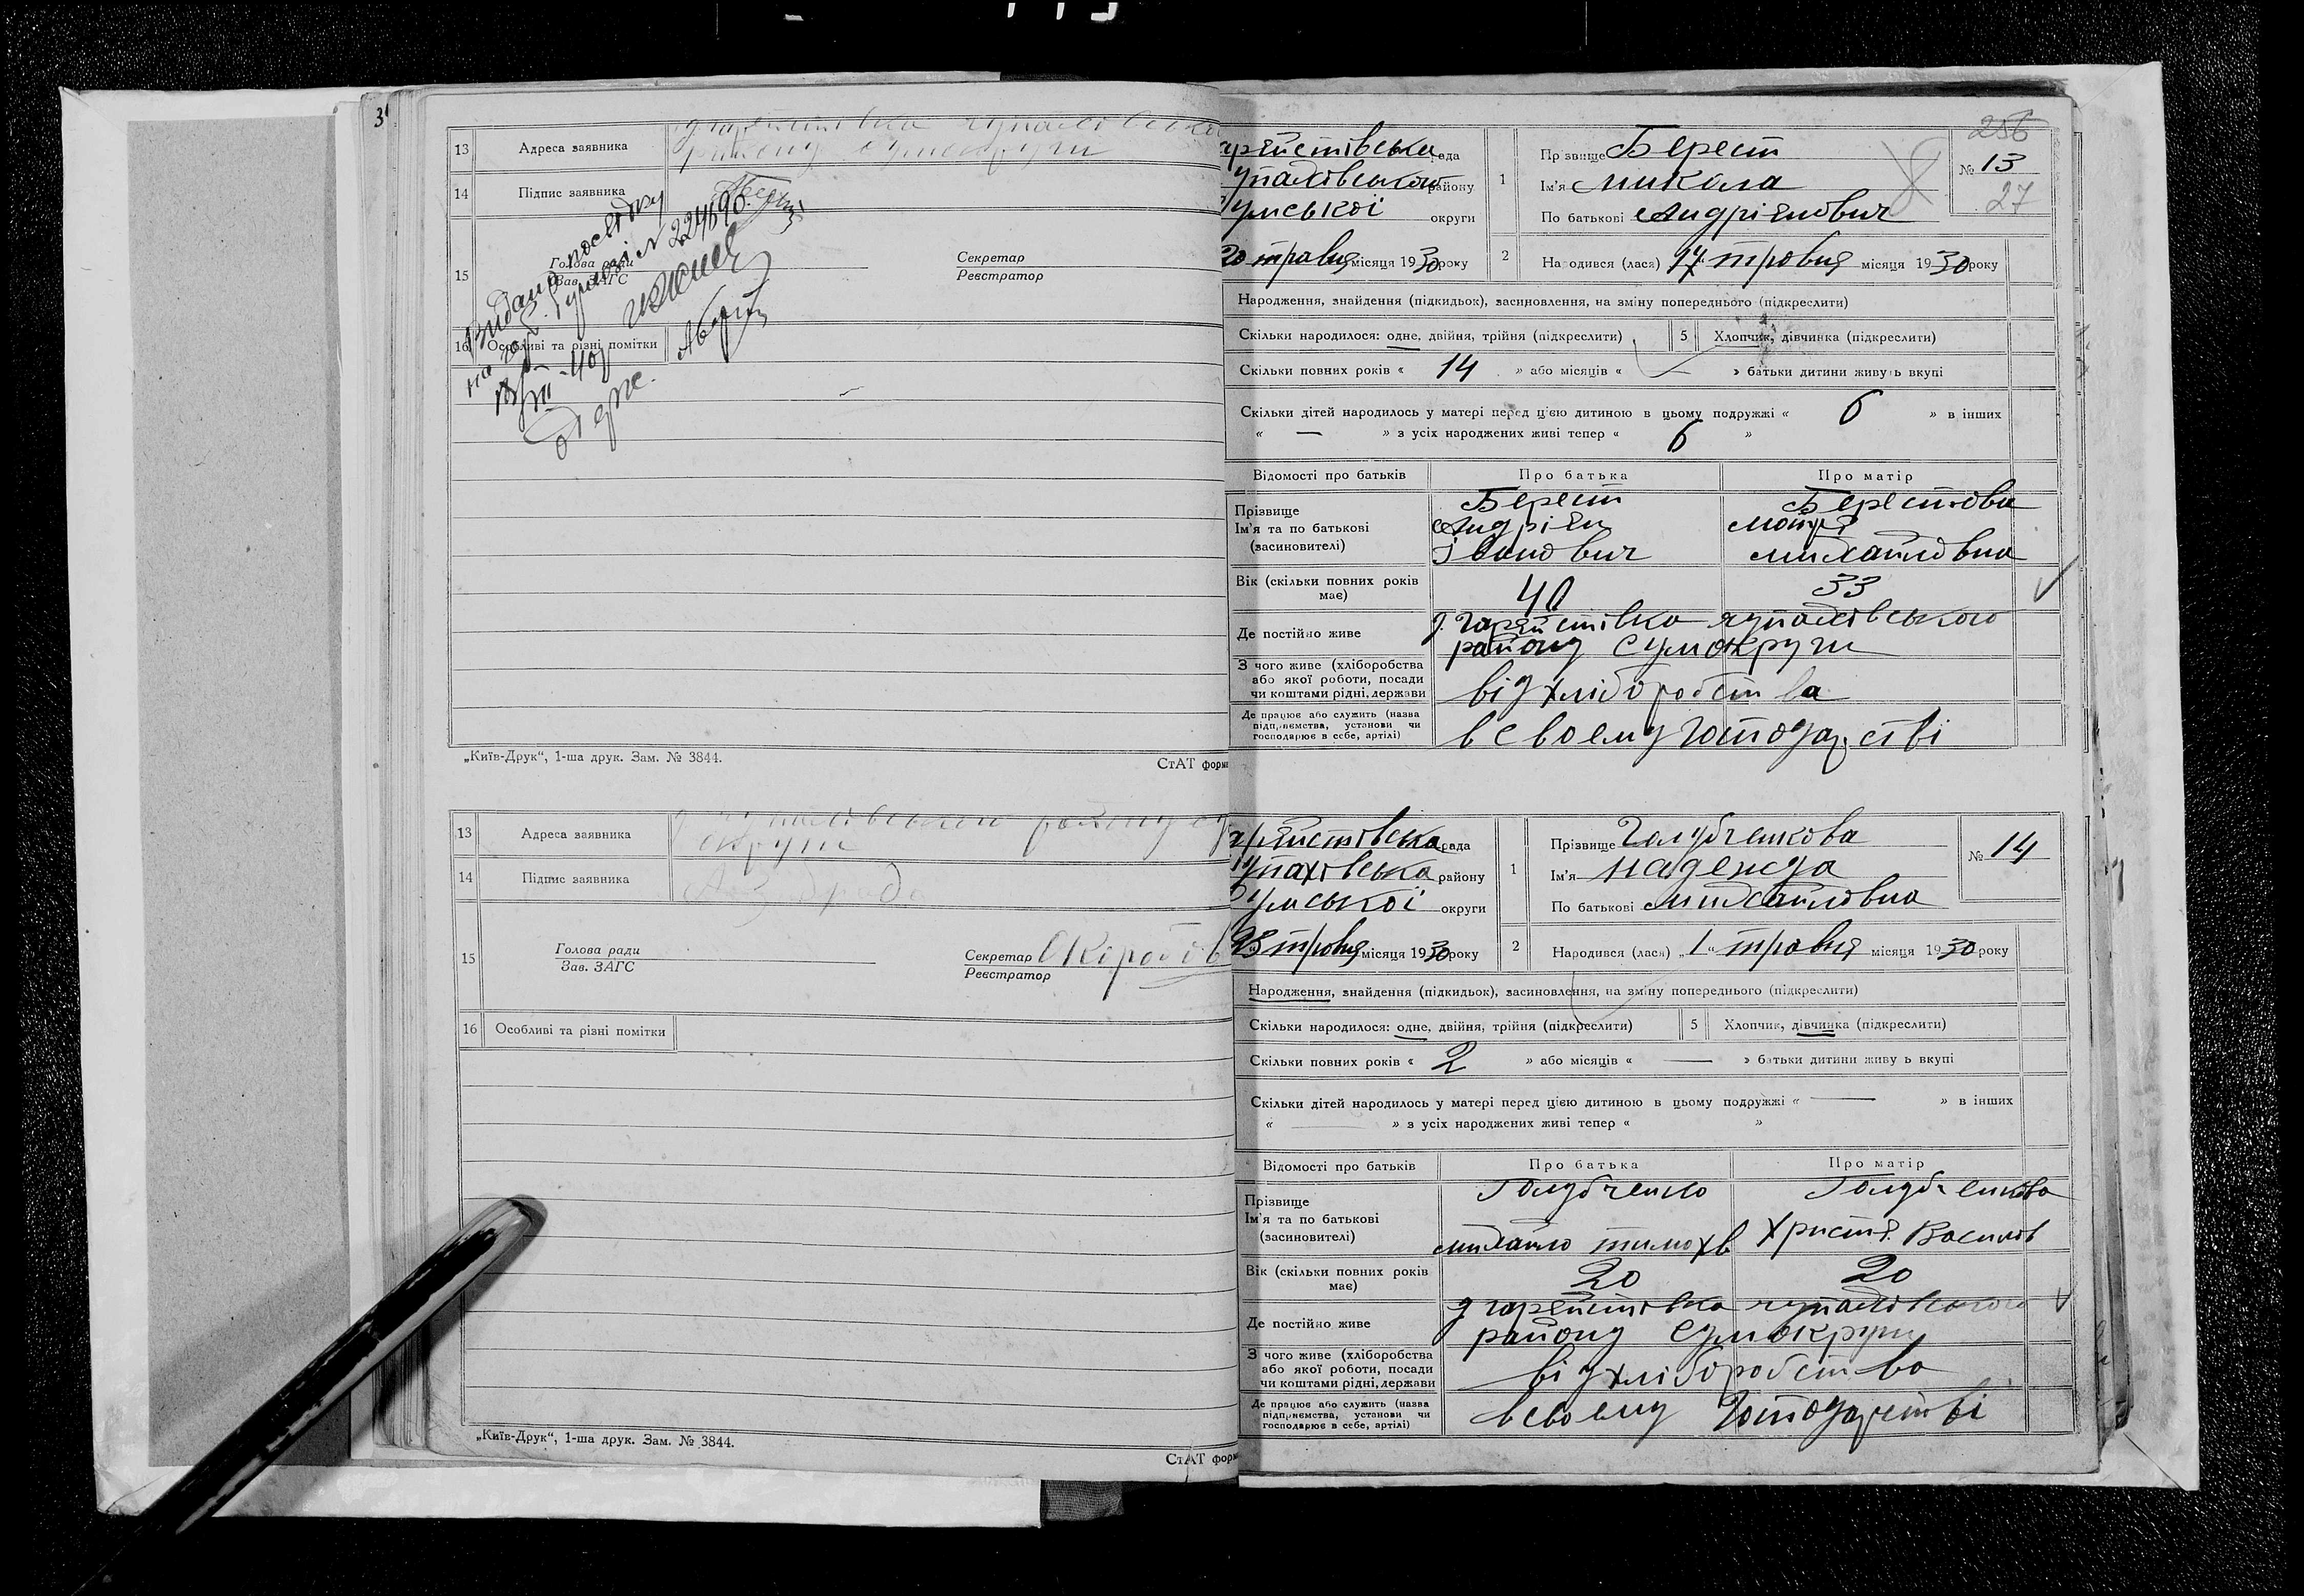 3
13 Адреса заявника
14 Підпис заявника
15 Голова ради
Зав. ЗАГС
Секретар
Реєстратор
Видано посвідку
№ 224690
16 Особливі та різні помітки
„Київ-Друк“, 1-ша друк. Зам. № 3844.
СтАТ форм
13 Адреса заявника
округи
14 Підпис заявника
15 Голова ради
Зав. ЗАГС
Секретар
Реєстратор
16 Особливі та різні помітки
„Київ-Друк“, 1-ша друк. Зам. № 3844.
СтАТ форм
256
рада
району
умської округи
20 травня місяця 1930 року
1 Прізвище Берест
Ім'я Микола
По батькові Андріянович
№ 13
27
2 Народився (лася) 17 травня місяця 1930 року
Народження, знайдення (підкидьок), засиновлення, на зміну попереднього (підкреслити)
Скільки народилося: одне, двійня, трійня (підкреслити) 5 Хлопчик, дівчинка (підкреслити)
Скільки повних років « 14 » або місяців « — » батьки дитини живуть вкупі
Скільки дітей народилось у матері перед цією дитиною в цьому подружжі « 6 » в інших
« — » з усіх народжених живі тепер « 6 »
Відомості про батьків Про батька Про матір
Прізвище Берест Берестова
Ім'я та по батькові Андріян Мотря
(засиновителі) Іванович Михайловна
Вік (скільки повних років має) 40 33
Де постійно живе
району Сумокруги
З чого живе (хліборобства
або якої роботи, посади
чи коштами рідні, держави від хліборобства
Де працює або служить (назва
підприємства, установи чи
господарює в себе, артілі) в своему господарстві
рада
району
умської округи
травня місяця 1930 року
1 Прізвище Голубченкова
Ім'я Надежда
По батькові Михайловна
№ 14
2 Народився (лася) „1“ травня місяця 1930 року
Народження, знайдення (підкидьок), засиновлення, на зміну попереднього (підкреслити)
Скільки народилося: одне, двійня, трійня (підкреслити) 5 Хлопчик, дівчинка (підкреслити)
Скільки повних років « 2 » або місяців « — » батьки дитини живу ь вкупі
Скільки дітей народилось у матері перед цією дитиною в цьому подружжі « — » в інших
« — » з усіх народжених живі тепер « »
Відомості про батьків Про батька Про матір
Прізвище Голубченко Голубченкова
Ім'я та по батькові
(засиновителі) Михайло Тимохв Христя Васил
Вік (скільки повних років має) 20 20
Де постійно живе
району Сумокруги
З чого живе (хліборобства
або якої роботи, посади
чи коштами рідні, держави від хліборобства
Де працює або служить (назва
підприємства, установи чи
господарює в себе, артілі) в своему господарстві